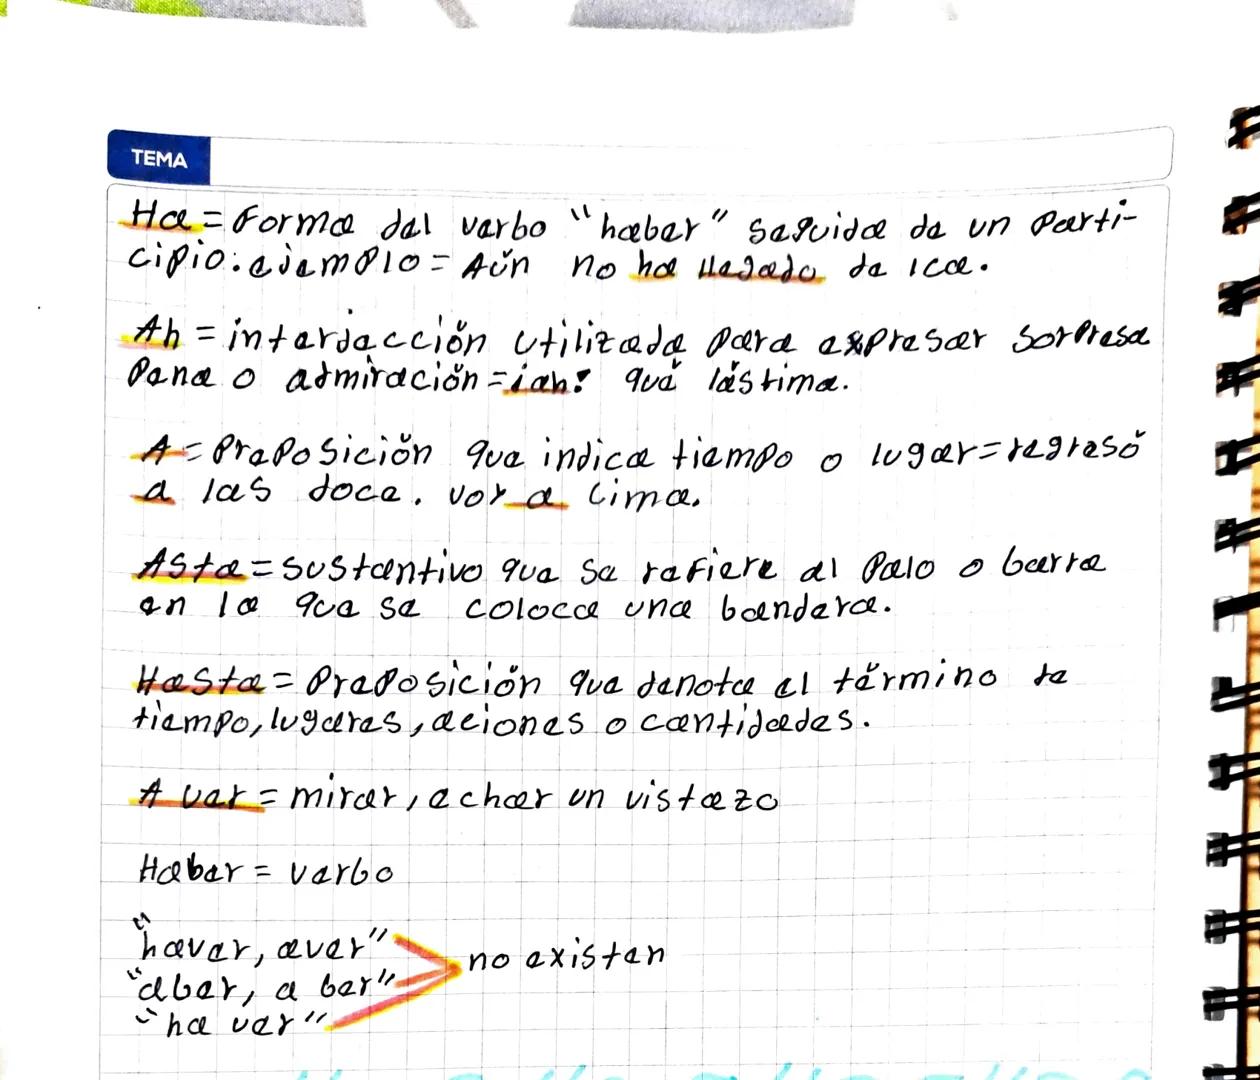 TEMA
Ha = Forma del verbo "haber" seguida de un parti-
cipio. ejemplo = Aún no ha llegado de Ica.
Ah = interjección utilizada para expresar sorpresa
Pena o admiración = ¡ah! qué lástima.
A = Preposición que indica tiempo o lugar = regresó
a las doce. voy a Lima.
Asta = sustantivo que se refiere al Palo o barra
en la que se coloca una bandera.
Hasta = Preposición que denota el término de
tiempo, lugares, aciones o cantidades.
A ver = mirar, echar un vistazo
Haber = verbo
"haver, aver"
"aber, a ber" no existen
"ha ver"